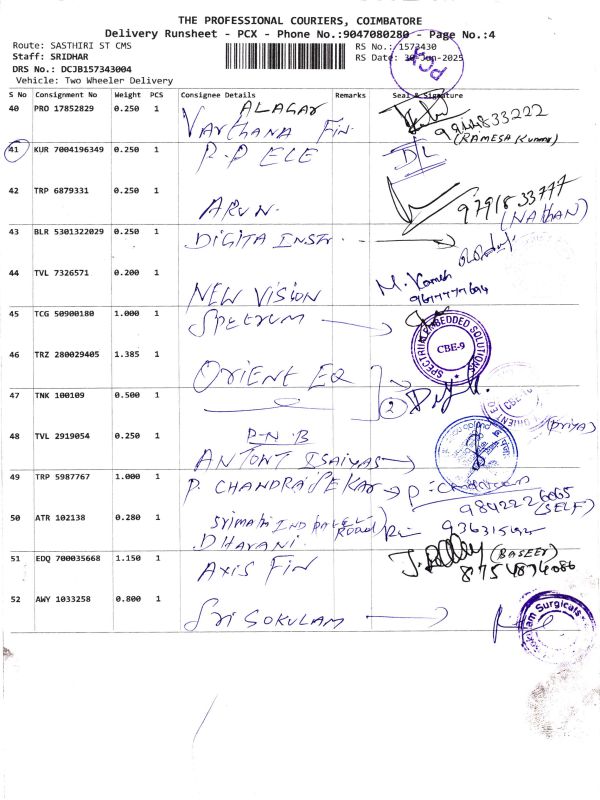 THE PROFESSIONAL COURIERS, COIMBATORE
Delivery Runsheet - PCX - Phone No.:9047080280 - Page No.:4
Route: SASTHIRI ST CMS
RS No.: 1573430
Staff: SRIDHAR
RS Date: 30-Jun-2025
DRS No.: DCJB157343004
Vehicle: Two Wheeler Delivery
PCX
S No Consignment No Weight PCS Consignee Details Remarks Seal & Signature
40 PRO 17852829 0.250 1 ALAGAR
VARTHANA FIN. 9944833222
(RAMESH KUMAR)
41 KUR 7004196349 0.250 1 P.P ELE D/L
42 TRP 6879331 0.250 1 ARUN. 9791833777
(NATHAN)
43 BLR 5301322029 0.250 1 DIGITA INSTR.
44 TVL 7326571 0.200 1 NEW VISION M. Ramesh
45 TCG 50900180 1.000 1 SPECTRUM
SPECTRUM EMBEDDED SOLUTIONS
CBE-9
46 TRZ 280029405 1.385 1 ORIENT EQ
47 TNK 100109 0.500 1 2
(Priya)
48 TVL 2919054 0.250 1 P.N.B
ANTONY ISAIYAS
49 TRP 5987767 1.000 1 P. CHANDRASEKAR
(SELF)
50 ATR 102138 0.280 1 Srimathi Road
DHARANI
51 EDQ 700035668 1.150 1 AXIS FIN (BASEER)
8754874086
52 AWY 1033258 0.800 1 SRI GOKULAM
Surgicals